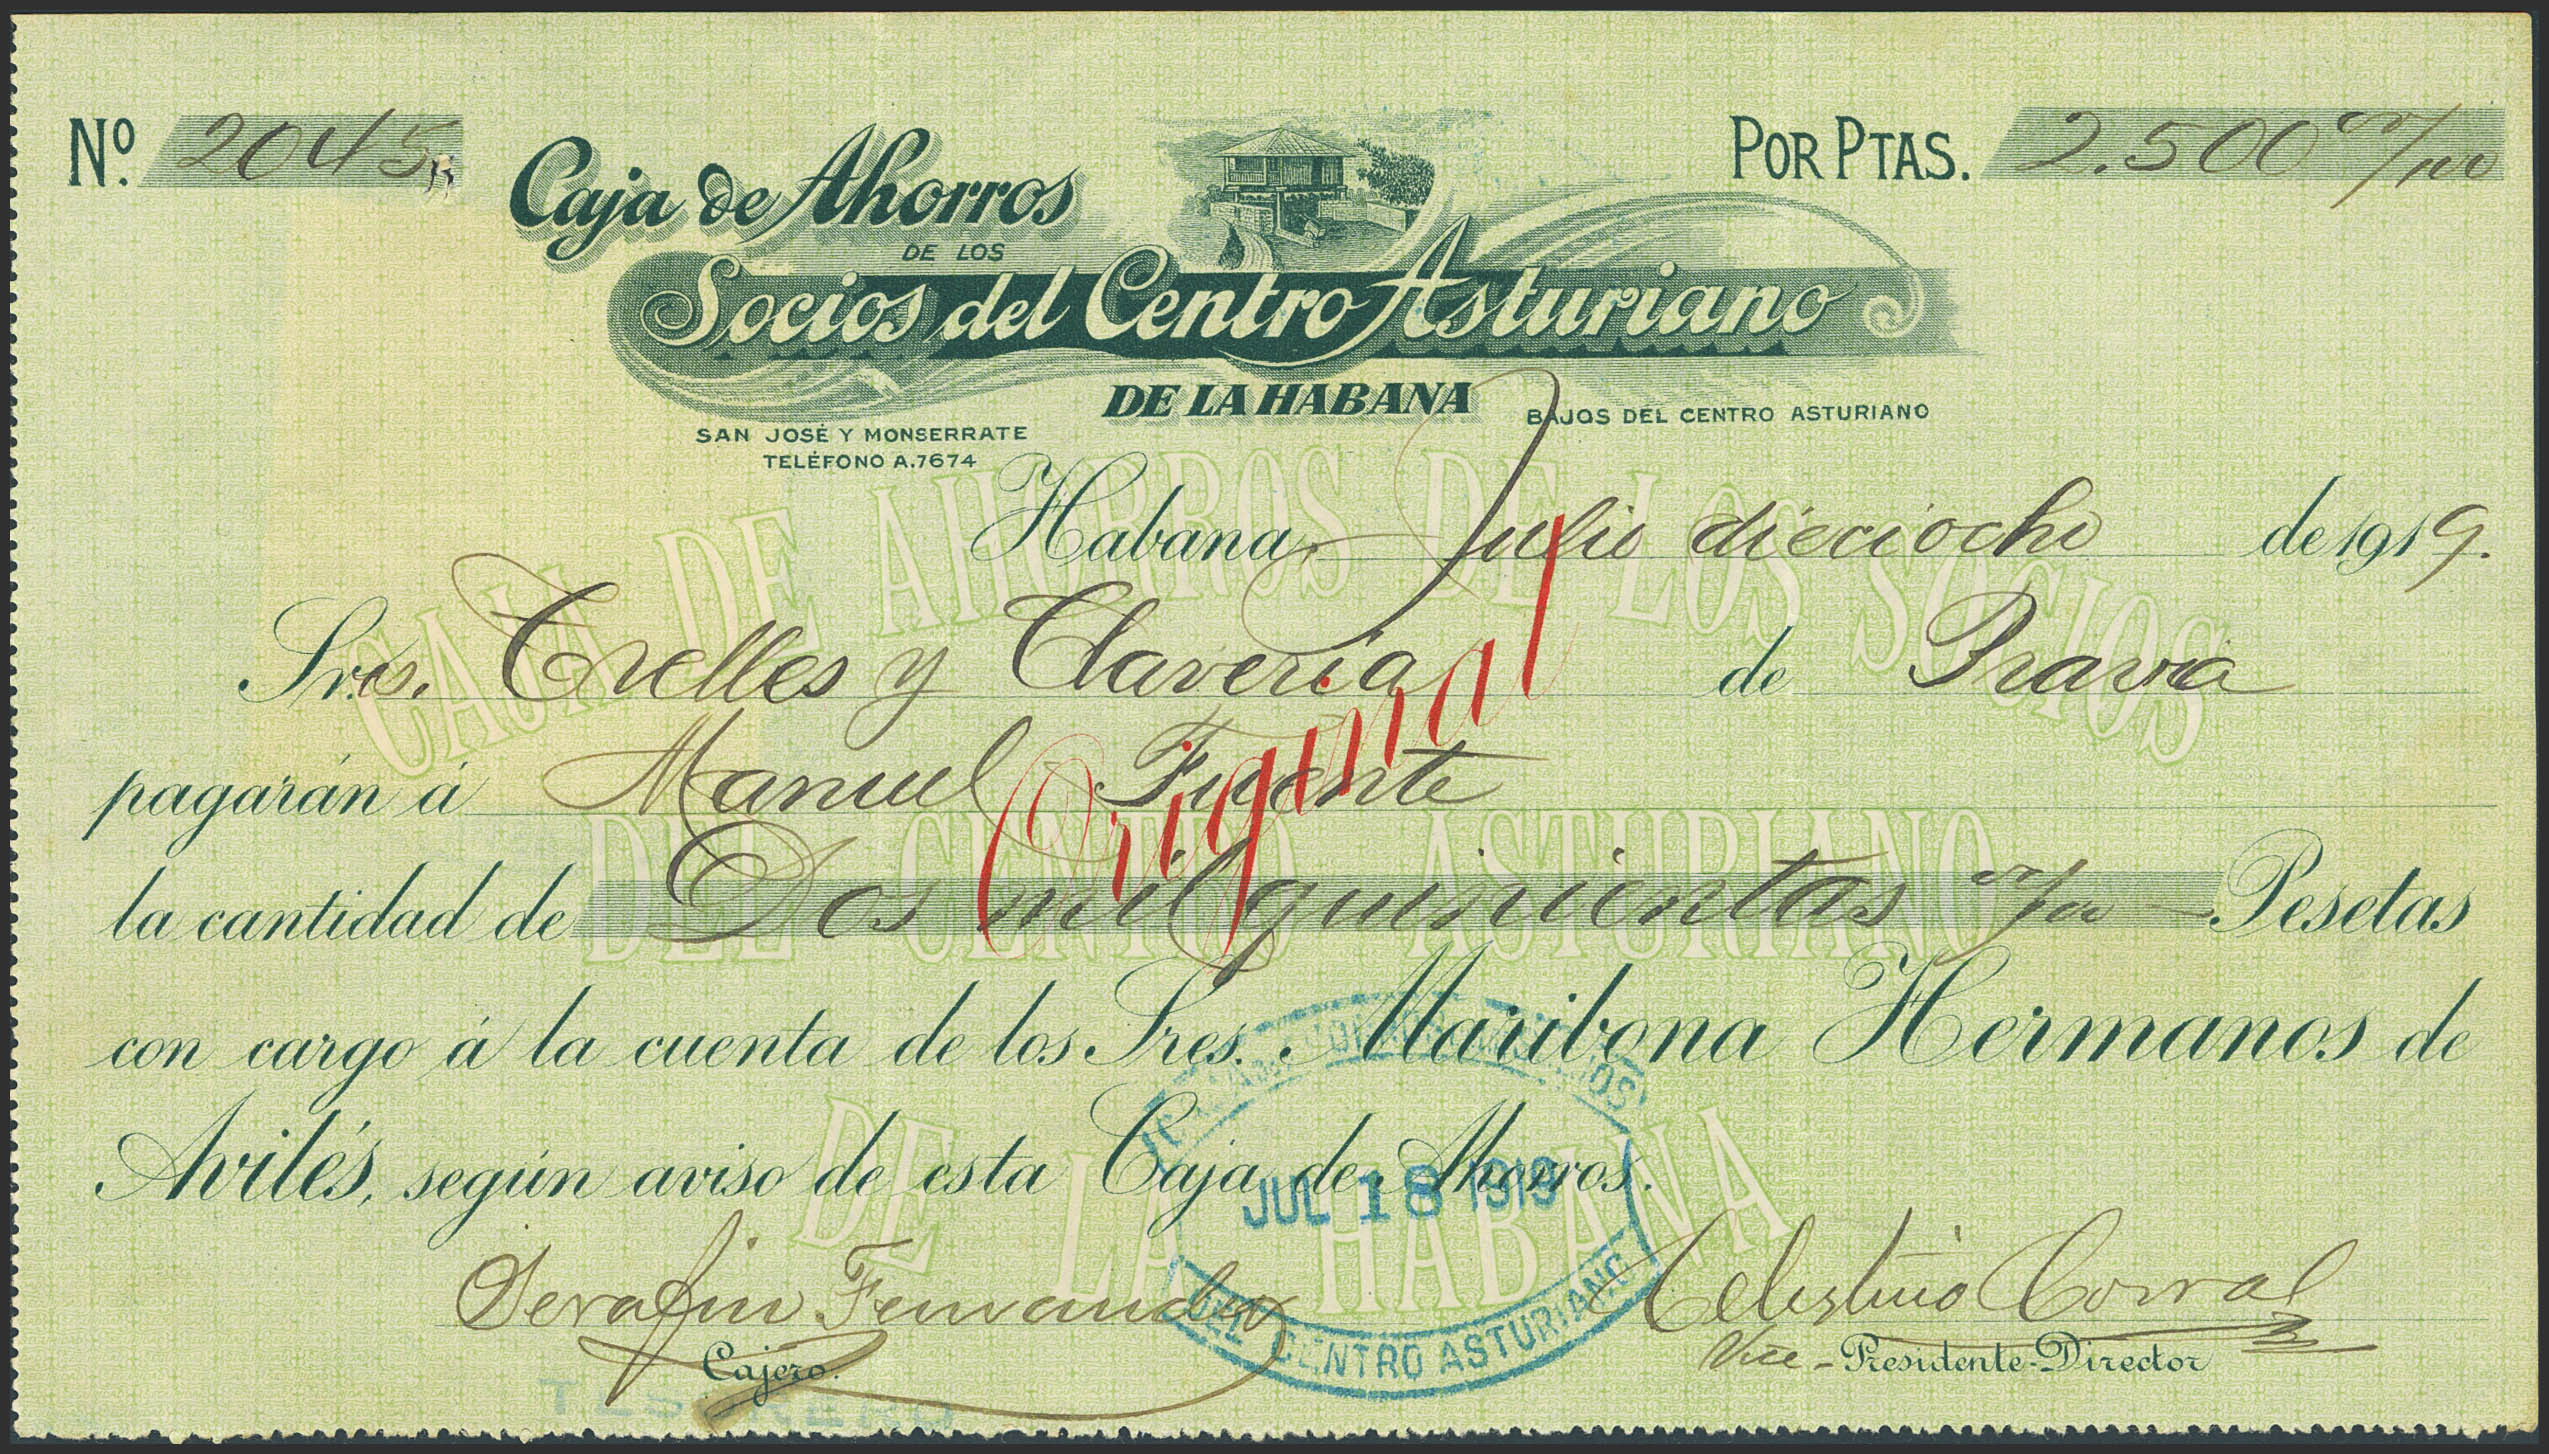 Nº. 2045
POR PTAS. 2.500 00/100
Caja de Ahorros
DE LOS
Socios del Centro Asturiano
DE LA HABANA
SAN JOSÉ Y MONSERRATE
TELÉFONO A.7674
BAJOS DEL CENTRO ASTURIANO
Habana, Julio dieciocho de 1919.
Sres. Trelles y Claveria de Pravia
pagarán á Manuel Fuente
Original
la cantidad de Dos mil quinientas 00/100 Pesetas
con cargo á la cuenta de los Sres. Maribona Hermanos de
Avilés, según aviso de esta Caja de Ahorros.
CAJA DE AHORROS DE LOS SOCIOS
DEL CENTRO ASTURIANO
DE LA HABANA
JUL 18 1919
DEL CENTRO ASTURIANO
Serafin Fernandez
Cajero.
TESORERO
Celestino Corral
Vice-Presidente-Director